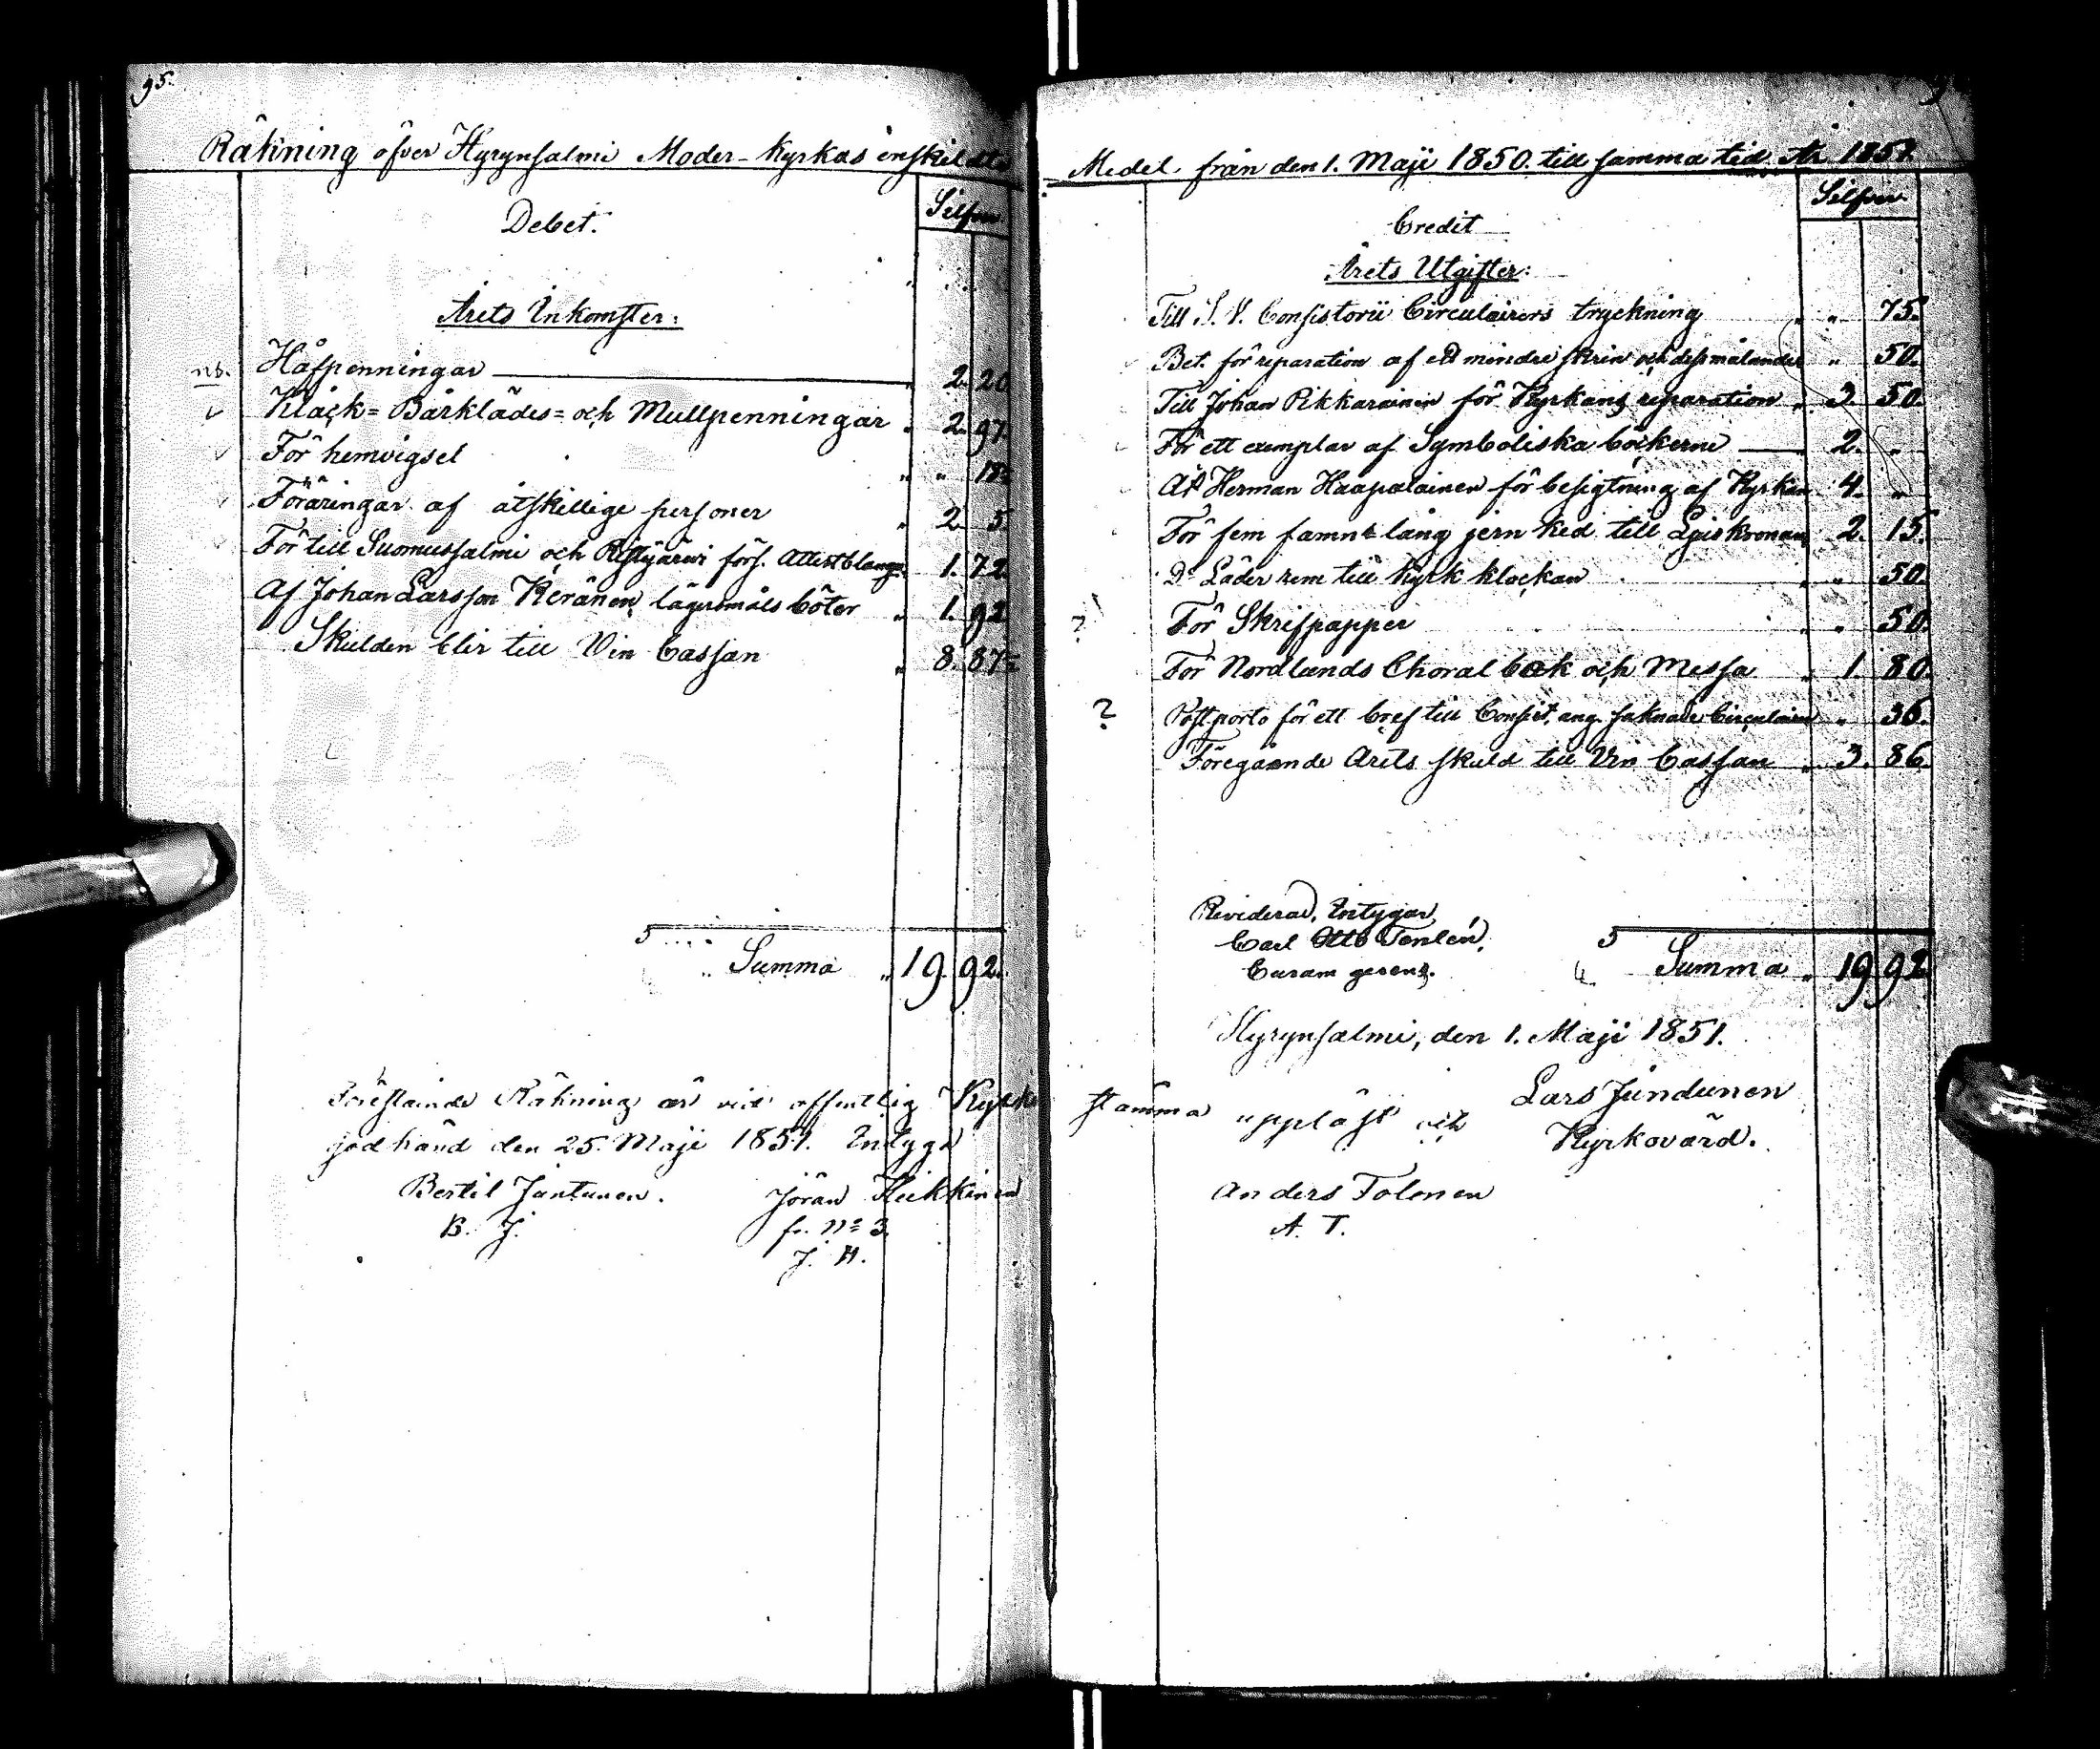 95.
Räkning öfver Hyrynsalmi Moder-Kyrkas enskildta
Silfver
Debet.
Årets Inkomster:
ns. Håfpenningar 2. 20
Klock= Bårklädes= och Mullpenningar 2. 97.
För hemvigsel " 18½
Föräringar af åtskillige personer 2. 5.
För till Suomussalmi och Ristijärwi förs. Attestblanqv. 1. 72.
Af Johan Larsson Keränen lägersmåls böter 1. 92.
Skulden blir till Vin Cassan 8. 87½
Summa 19. 92.
Föreståinde Räkning är vid offentlig Kyrko
godkänd den 25. Maji 1851. Intyga
Bertil Juntunen. Jöran Heikkinen
B. J. fr. No 3.
J. H.
Medel från den 1. Maji 1850. till samma tid År 1851.
Silfver
Credit
Årets Utgifter:
Till S. V. Consistorii Circulairers tryckning " 75.
Bet. för reparation af ett mindre skrin och dess målande " 50.
Till Johan Pikkarainen för Kyrkans reparation 3. 50.
För ett exemplar af Symboliska böckerne 2. "
Åt Herman Haapalainen för besigtning af Kyrkan 4. "
För fem famnt lång jern ked till Ljuskronan 2. 15.
Do Läder rem till Kyrk klockan " 50.
? För Skrifpapper " 50.
För Nordlunds Choral bok och Messa 1. 80.
? Postporto för ett bref till Consist. ang. saknade Circulairer " 36.
Föregående Årets skuld till Vin Cassan 3. 86.
Reviderad, Intygar,
Carl Otto
Curam gerens.
Summa 19 92.
Hyrynsalmi, den 1. Maji 1851.
Lars Jundunen
Kyrkovärd.
stämma uppläst och
Anders Tolonen
A. T.